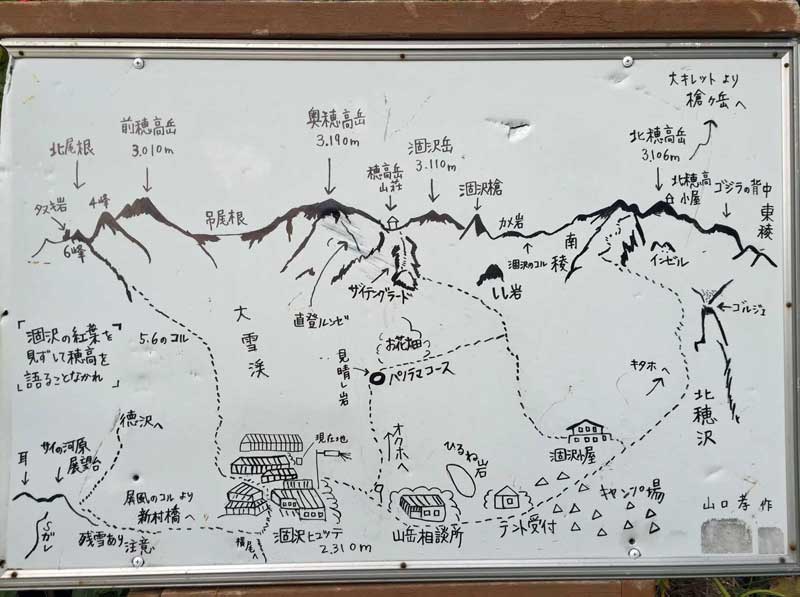 大キレットより
槍ヶ岳へ
前穂高岳
3.010m
奥穂高岳
3.190m
涸沢岳
3.110m
北穂高岳
3.106m
北尾根
穂高岳
山荘
涸沢槍
北穂高
小屋
ゴジラの背中
東稜
タヌキ岩
4峰
吊尾根
カメ岩
6峰
涸沢のコル
南稜
インゼル
ザイテングラード
しし岩
直登ルンゼ
ゴルジュ
大雪渓
「涸沢の紅葉を
見ずして穂高を
語ることなかれ」
5.6のコル
お花畑
見晴し岩
パノラマコース
キタホへ
北穂沢
徳沢へ
サイの河原
展望台
耳
オクホへ
現在地
ひるね岩
涸沢小屋
キャンプ場
屏風のコルより
新村橋へ
山口孝作
残雪あり注意
横尾へ
涸沢ヒュッテ
2.310m
山岳相談所
テント受付